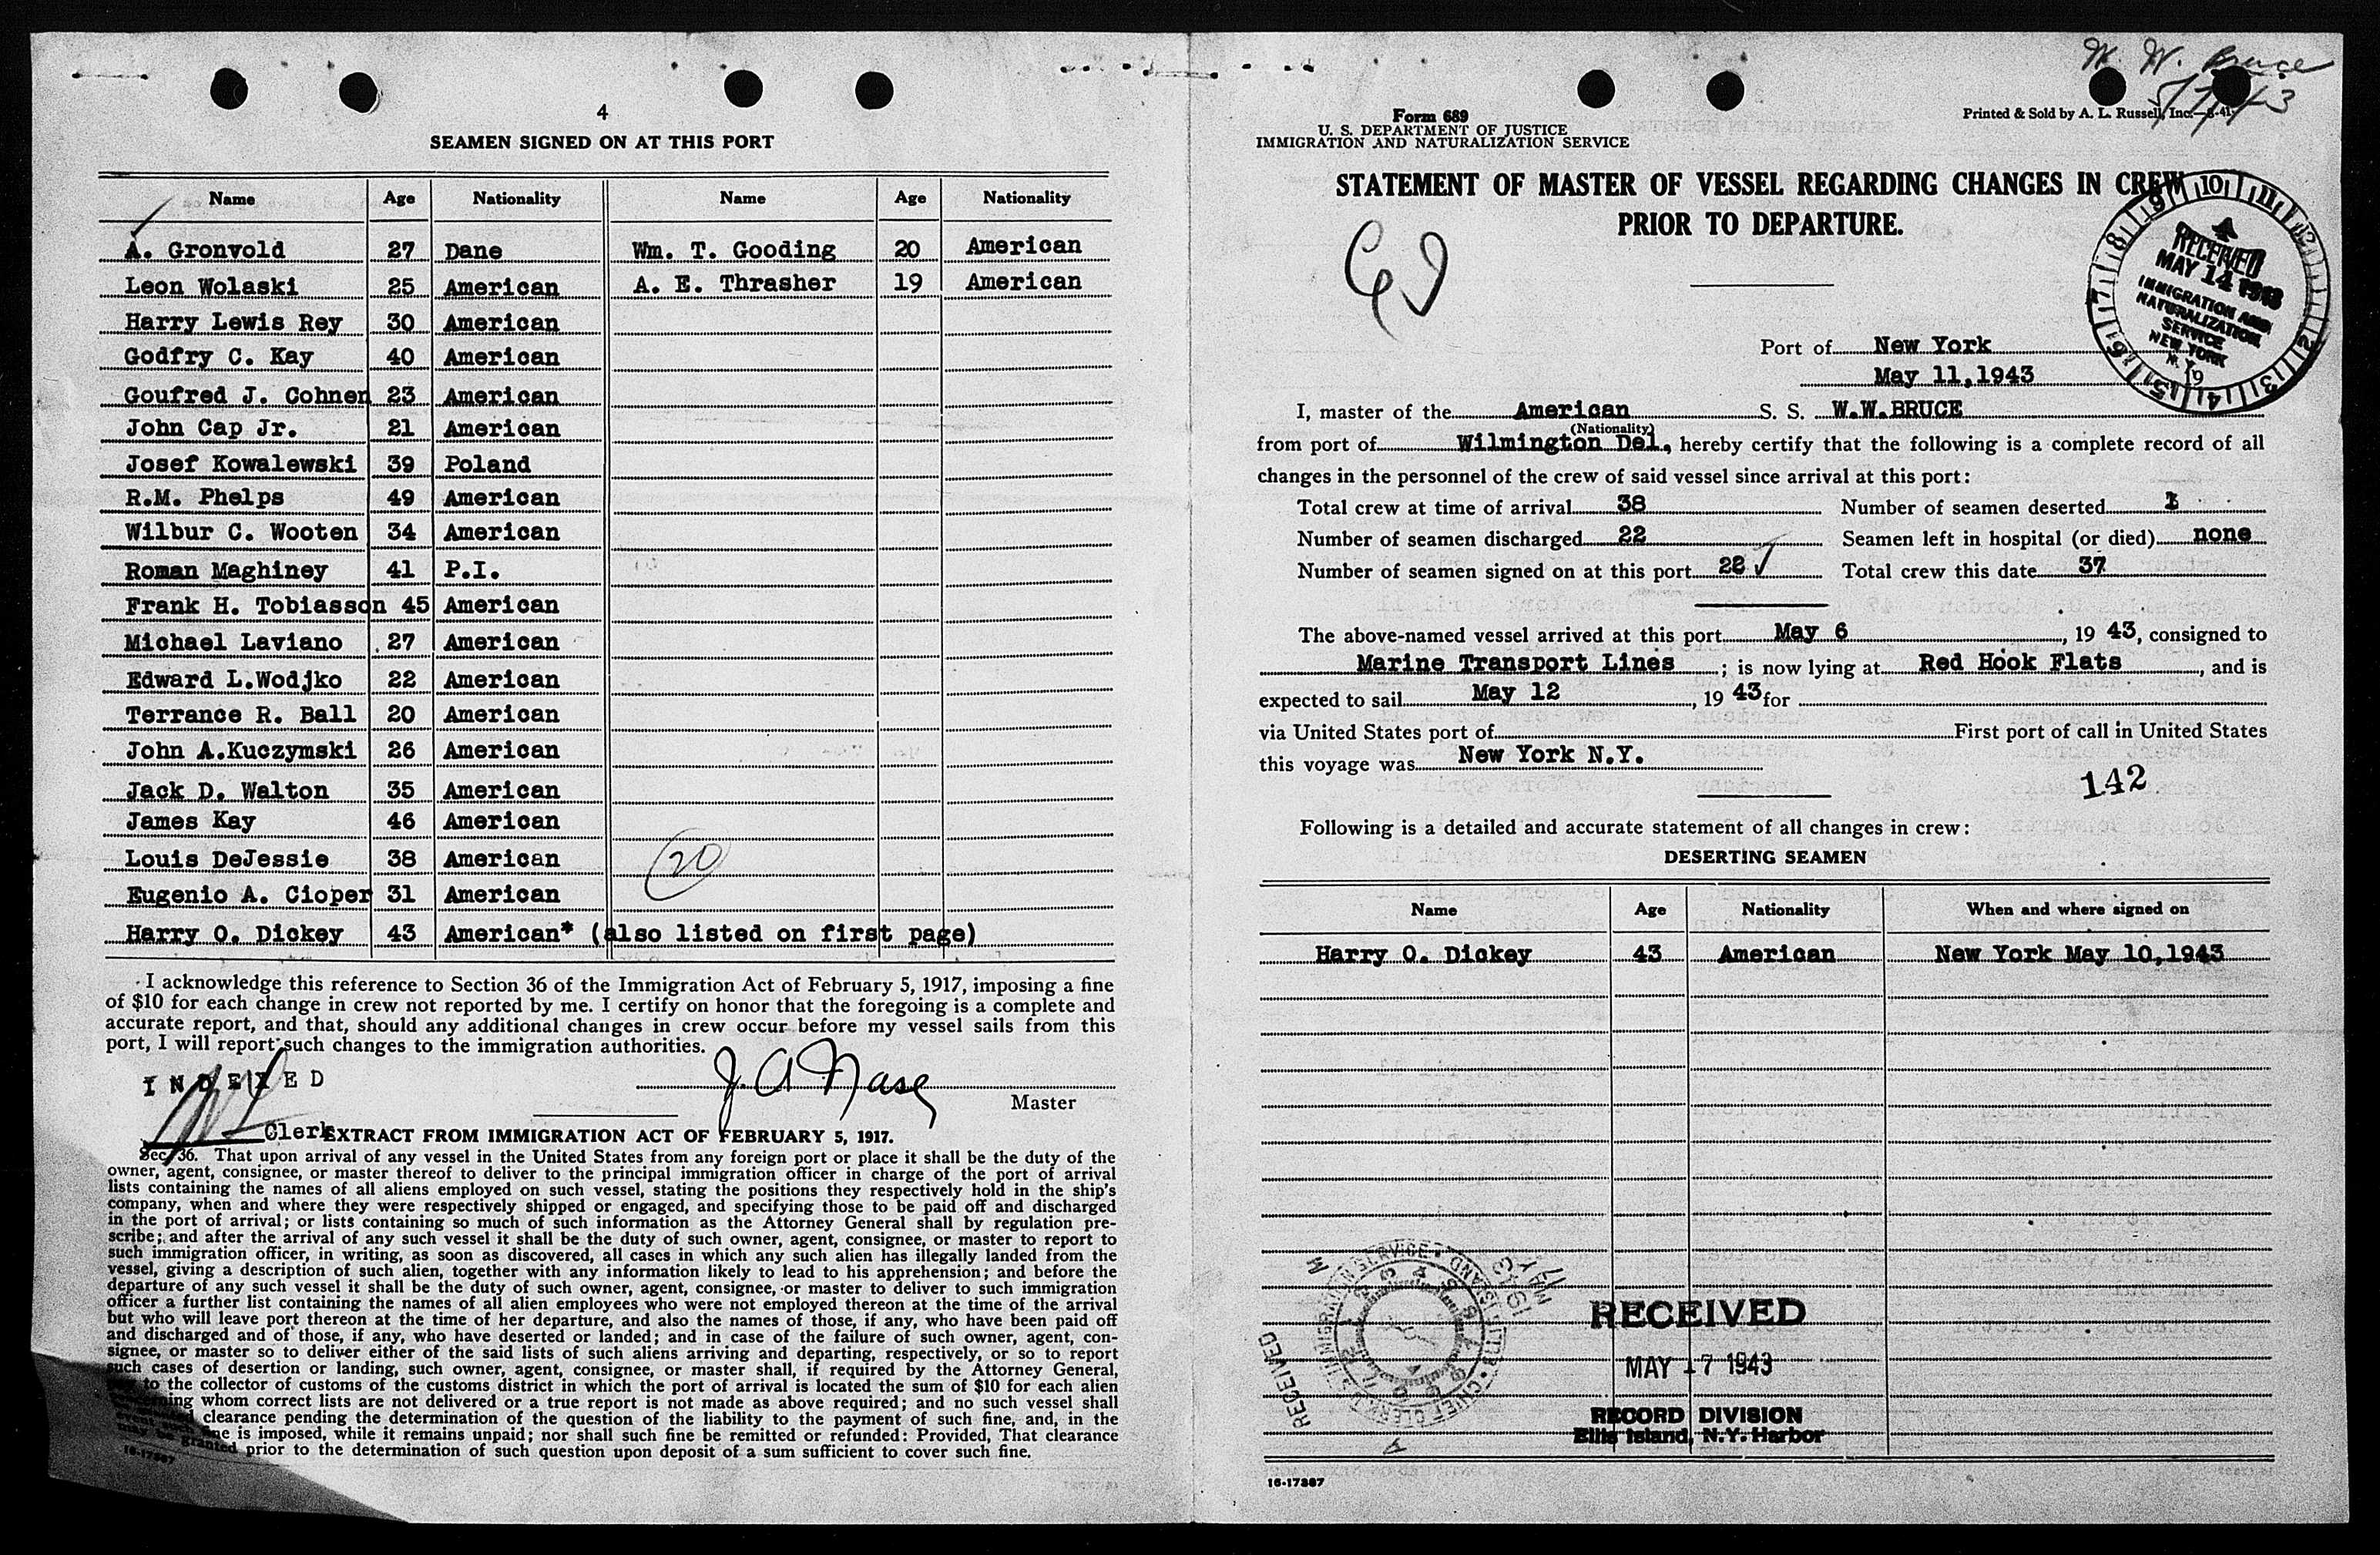 4
SEAMEN SIGNED ON AT THIS PORT
Name Age Nationality Name Age Nationality
A. Gronvold 27 Dane Wm. T. Gooding 20 American
Leon Wolaski 25 American A. E. Thrasher 19 American
Harry Lewis Rey 30 American
Godfry C. Kay 40 American
Goufred J. Cohnen 23 American
John Cap Jr. 21 American
Josef Kowalewski 39 Poland
R.M. Phelps 49 American
Wilbur C. Wooten 34 American
Roman Maghiney 41 P.I.
Frank H. Tobiasson 45 American
Michael Laviano 27 American
Edward L.Wodjko 22 American
Terrance R. Ball 20 American
John A.Kuczymski 26 American
Jack D. Walton 35 American
James Kay 46 American
Louis DeJessie 38 American 20
Eugenio A. Cioper 31 American
Harry O. Dickey 43 American* (also listed on first page)
I acknowledge this reference to Section 36 of the Immigration Act of February 5, 1917, imposing a fine
of $10 for each change in crew not reported by me. I certify on honor that the foregoing is a complete and
accurate report, and that, should any additional changes in crew occur before my vessel sails from this
port, I will report such changes to the immigration authorities.
INDEXED
J. A. Nase
Master
Clerk
EXTRACT FROM IMMIGRATION ACT OF FEBRUARY 5, 1917.
Sec. 36. That upon arrival of any vessel in the United States from any foreign port or place it shall be the duty of the
owner, agent, consignee, or master thereof to deliver to the principal immigration officer in charge of the port of arrival
lists containing the names of all aliens employed on such vessel, stating the positions they respectively hold in the ship's
company, when and where they were respectively shipped or engaged, and specifying those to be paid off and discharged
in the port of arrival; or lists containing so much of such information as the Attorney General shall by regulation pre-
scribe; and after the arrival of any such vessel it shall be the duty of such owner, agent, consignee, or master to report to
such immigration officer, in writing, as soon as discovered, all cases in which any such alien has illegally landed from the
vessel, giving a description of such alien, together with any information likely to lead to his apprehension; and before the
departure of any such vessel it shall be the duty of such owner, agent, consignee, or master to deliver to such immigration
officer a further list containing the names of all alien employees who were not employed thereon at the time of the arrival
but who will leave port thereon at the time of her departure, and also the names of those, if any, who have been paid off
and discharged and of those, if any, who have deserted or landed; and in case of the failure of such owner, agent, con-
signee, or master so to deliver either of the said lists of such aliens arriving and departing, respectively, or so to report
such cases of desertion or landing, such owner, agent, consignee, or master shall, if required by the Attorney General,
to the collector of customs of the customs district in which the port of arrival is located the sum of $10 for each alien
whom correct lists are not delivered or a true report is not made as above required; and no such vessel shall
clearance pending the determination of the question of the liability to the payment of such fine, and, in the
is imposed, while it remains unpaid; nor shall such fine be remitted or refunded: Provided, That clearance
may be granted prior to the determination of such question upon deposit of a sum sufficient to cover such fine.
16-17887
W. W. Bruce
Form 689
U. S. DEPARTMENT OF JUSTICE
IMMIGRATION AND NATURALIZATION SERVICE
Printed & Sold by A. L. Russell, Inc.
STATEMENT OF MASTER OF VESSEL REGARDING CHANGES IN CREW
PRIOR TO DEPARTURE.
RECEIVED
MAY 14 1943
IMMIGRATION AND
NATURALIZATION
SERVICE
NEW YORK
N.Y.
Port of New York
May 11,1943
I, master of the American S. S. W.W.BRUCE
(Nationality)
from port of Wilmington Del., hereby certify that the following is a complete record of all
changes in the personnel of the crew of said vessel since arrival at this port:
Total crew at time of arrival 38 Number of seamen deserted 1
Number of seamen discharged 22 Seamen left in hospital (or died) none
Number of seamen signed on at this port 22 Total crew this date 37
The above-named vessel arrived at this port May 6, 19 43, consigned to
Marine Transport Lines; is now lying at Red Hook Flats, and is
expected to sail May 12, 19 43 for
via United States port of First port of call in United States
this voyage was New York N.Y.
142
Following is a detailed and accurate statement of all changes in crew:
DESERTING SEAMEN
Name Age Nationality When and where signed on
Harry O. Dickey 43 American New York May 10,1943
RECEIVED
MAY 17 1943
RECORD DIVISION
Ellis Island, N.Y. Harbor
16-17887